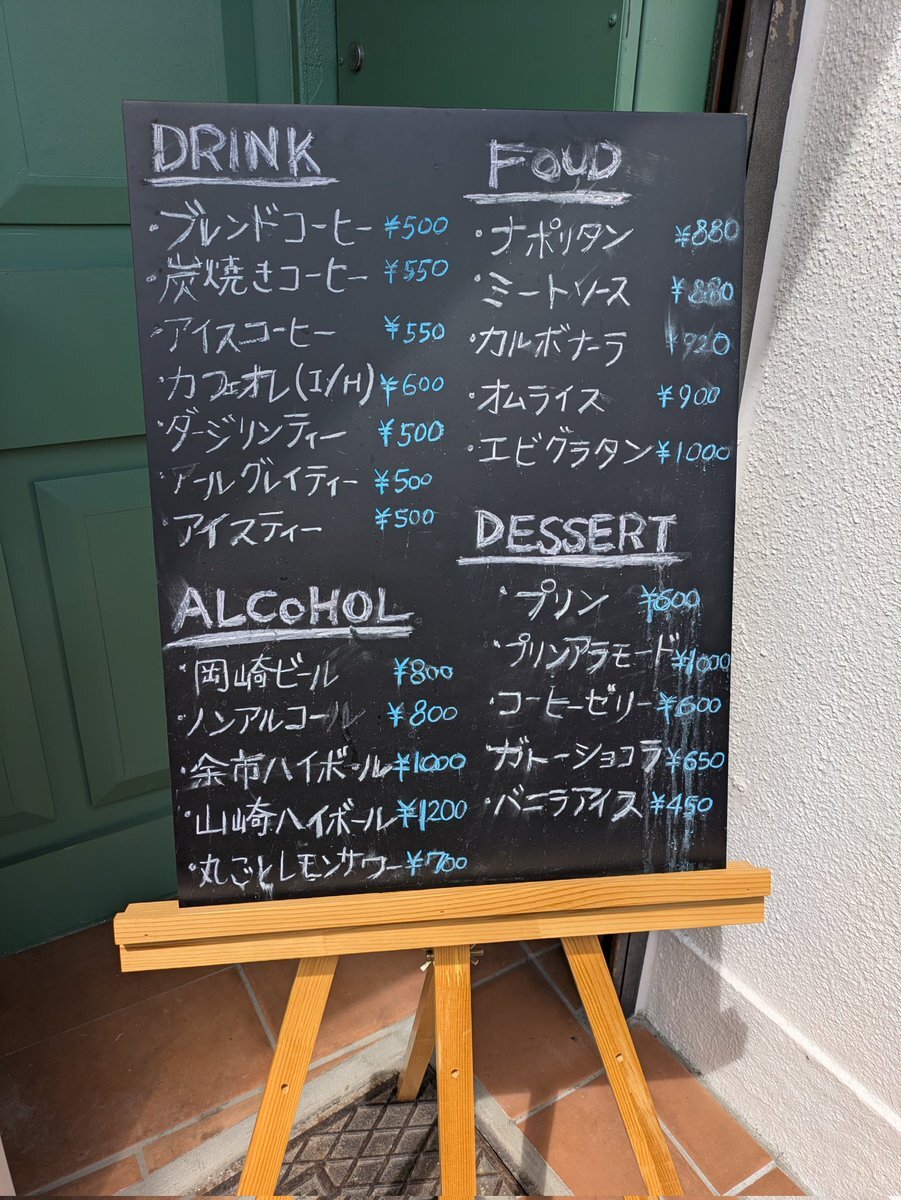 DRINK
・ブレンドコーヒー ¥500
・炭焼きコーヒー ¥550
・アイスコーヒー ¥550
・カフェオレ(I/H) ¥600
・ダージリンティー ¥500
・アールグレイティー ¥500
・アイスティー ¥500
ALCOHOL
・岡崎ビール ¥800
・ノンアルコール ¥800
・余市ハイボール ¥1000
・山崎ハイボール ¥1200
・丸ごとレモンサワー ¥700
FOUD
・ナポリタン ¥880
・ミートソース ¥880
・カルボナーラ ¥920
・オムライス ¥900
・エビグラタン ¥1000
DESSERT
・プリン ¥600
・プリンアラモード ¥1000
・コーヒーゼリー ¥600
・ガトーショコラ ¥650
・バニラアイス ¥450